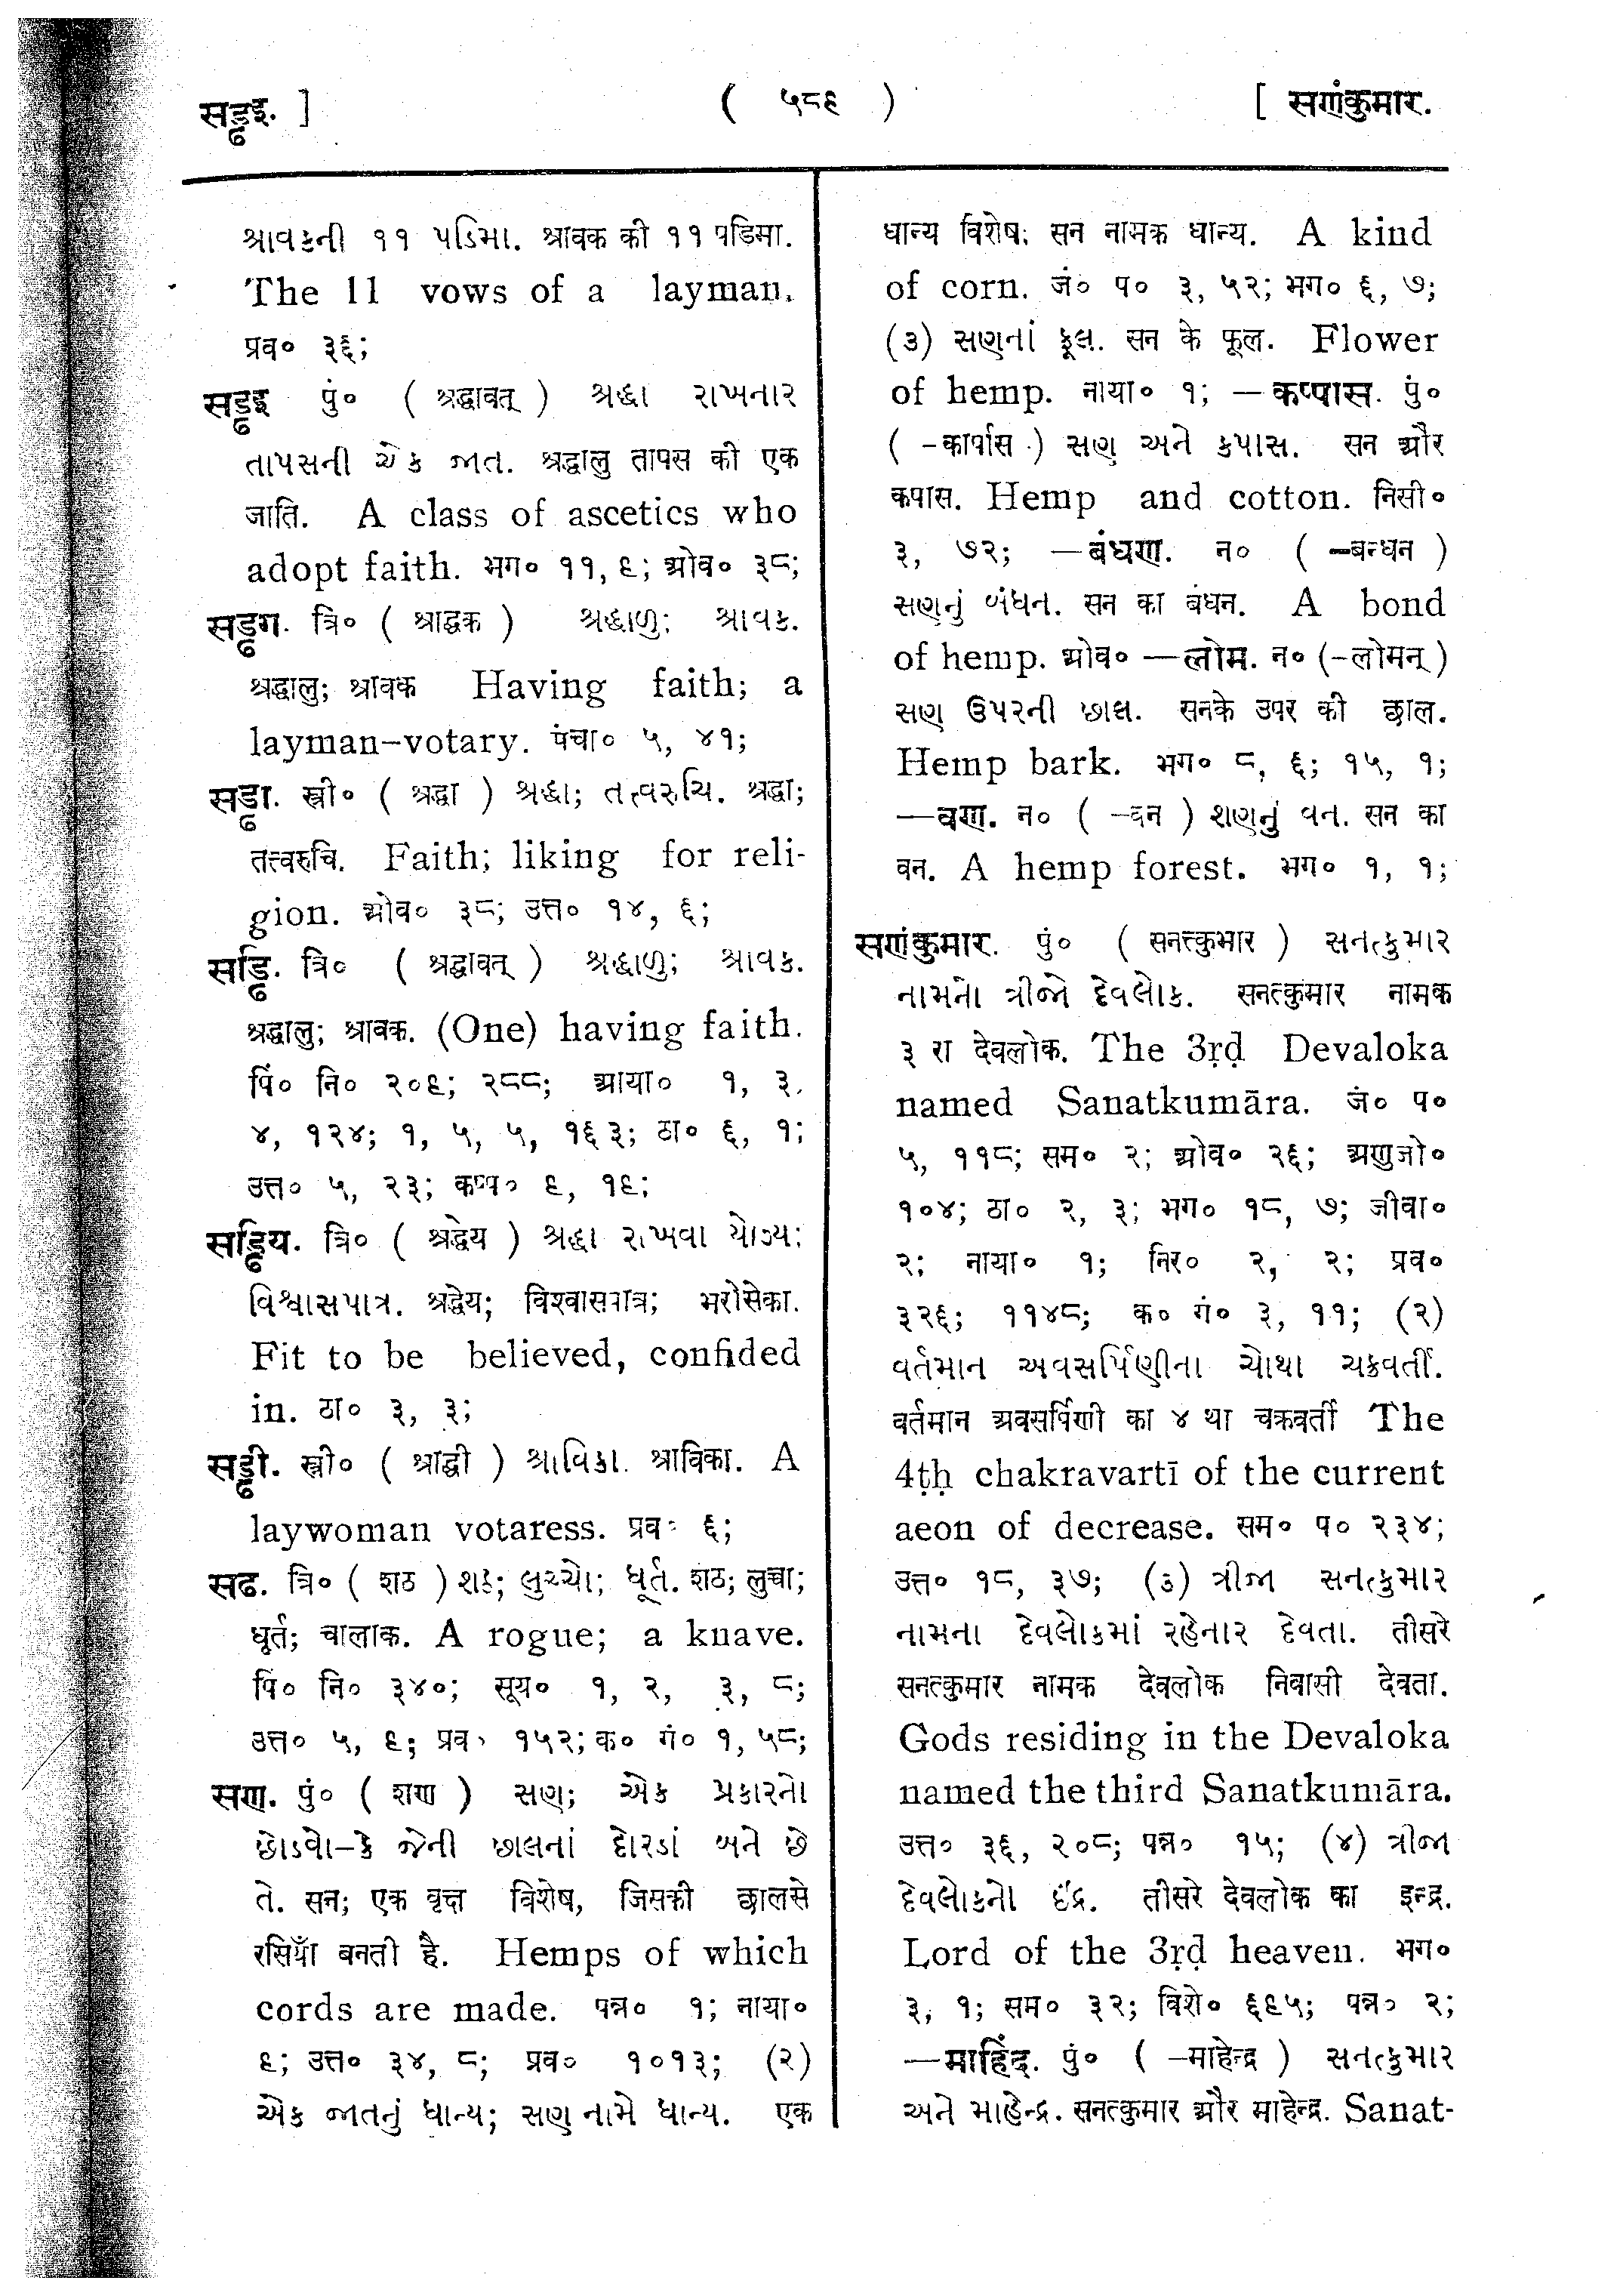 सड्ढइ. ] ( ५८९ ) [ सणंकुमार.
શ્રાવકની ૧૧ પડિમા. श्रावक की ११ पडिमा.
The 11 vows of a layman.
प्रव० ३६;
सड्ढइ पुं० ( श्रद्धावत् ) શ્રદ્ધા રાખનાર
તાપસની એક જાત. श्रद्धालु तापस की एक
जाति. A class of ascetics who
adopt faith. भग० ११, ९; ओव० ३८;
सड्ढग. त्रि० ( श्राद्धक ) શ્રદ્ધાળુ; શ્રાવક.
श्रद्धालु; श्रावक Having faith; a
layman-votary. पंचा० ५, ४१;
सड्ढा. स्त्री० ( श्रद्धा ) શ્રદ્ધા; તત્વરુચિ. श्रद्धा;
तत्त्वरुचि. Faith; liking for reli-
gion. ओव० ३८; उत्त० १४, ६;
सड्ढि. त्रि० ( श्रद्धावत् ) શ્રદ્ધાળુ; શ્રાવક.
श्रद्धालु; श्रावक. (One) having faith.
पिं० नि० २०९; २८८; आया० १, ३,
४, १२४; १, ५, ५, १६३; ठा० ६, १;
उत्त० ५, २३; कप्प० ९, १९;
सड्ढिय. त्रि० ( श्रद्धेय ) શ્રદ્ધા રાખવા યોગ્ય;
વિશ્વાસપાત્ર. श्रद्धेय; विश्वासपात्र; भरोसेका.
Fit to be believed, confided
in. ठा० ३, ३;
सड्ढी. स्त्री० ( श्राद्धी ) શ્રાવિકા. श्राविका. A
laywoman votaress. प्रव० ६;
सढ. त्रि० ( शठ ) શઠ; લુચ્ચો; ધૂર્ત. शठ; लुच्चा;
धूर्त; चालाक. A rogue; a knave.
पिं० नि० ३४०; सूय० १, २, ३, ८;
उत्त० ५, ९; प्रव० १५२; क० गं० १, ५८;
सण. पुं० ( शण ) સણ; એક પ્રકારનો
છોડવો-કે જેની છાલનાં દોરડાં બને છે
તે. सन; एक वृक्ष विशेष, जिसकी छालसे
रसियाँ बनती है. Hemps of which
cords are made. पन्न० १; नाया०
९; उत्त० ३४, ८; प्रव० १०१३; (२)
એક જાતનું ધાન્ય; સણ નામે ધાન્ય. एक
धान्य विशेष; सन नामक धान्य. A kind
of corn. जं० प० ३, ५२; भग० ६, ७;
(३) સણનાં ફૂલ. सन के फूल. Flower
of hemp. नाया० १; —कप्पास. पुं०
( -कार्पास ) સણ અને કપાસ. सन और
कपास. Hemp and cotton. निसी०
३, ७२; —बंधण. न० ( -बन्धन )
સણનું બંધન. सन का बंधन. A bond
of hemp. ओव० —लोम. न० (-लोमन्)
સણ ઉપરની છાલ. सनके उपर की छाल.
Hemp bark. भग० ८, ६; १५, १;
—वण. न० ( -वन ) શણનું વન. सन का
वन. A hemp forest. भग० १, १;
सणंकुमार. पुं० ( सनत्कुमार ) સનત્કુમાર
નામનો ત્રીજો દેવલોક. सनत्कुमार नामक
३ रा देवलोक. The 3ṛḍ Devaloka
named Sanatkumāra. जं० प०
५, ११८; सम० २; ओव० २६; अणुजो०
१०४; ठा० २, ३; भग० १८, ७; जीवा०
२; नाया० १; निर० २, २; प्रव०
३२६; ११४८; क० गं० ३, ११; (२)
વર્તમાન અવસર્પિણીના ચોથા ચક્રવર્તી.
वर्तमान अवसर्पिणी का ४ था चक्रवर्ती The
4ṭḥ chakravartī of the current
aeon of decrease. सम० प० २३४;
उत्त० १८, ३७; (૩) ત્રીજા સનત્કુમાર
નામના દેવલોકમાં રહેનાર દેવતા. तीसरे
सनत्कुमार नामक देवलोक निवासी देवता.
Gods residing in the Devaloka
named the third Sanatkumāra.
उत्त० ३६, २०८; पन्न० १५; (४) ત્રીજા
દેવલોકનો ઇંદ્ર. तीसरे देवलोक का इन्द्र.
Lord of the 3ṛḍ heaven. भग०
३, १; सम० ३२; विशे० ६९५; पन्न० २;
—माहिंद. पुं० ( -माहेन्द्र ) સનત્કુમાર
અને માહેન્દ્ર. सनत्कुमार और माहेन्द्र. Sanat-